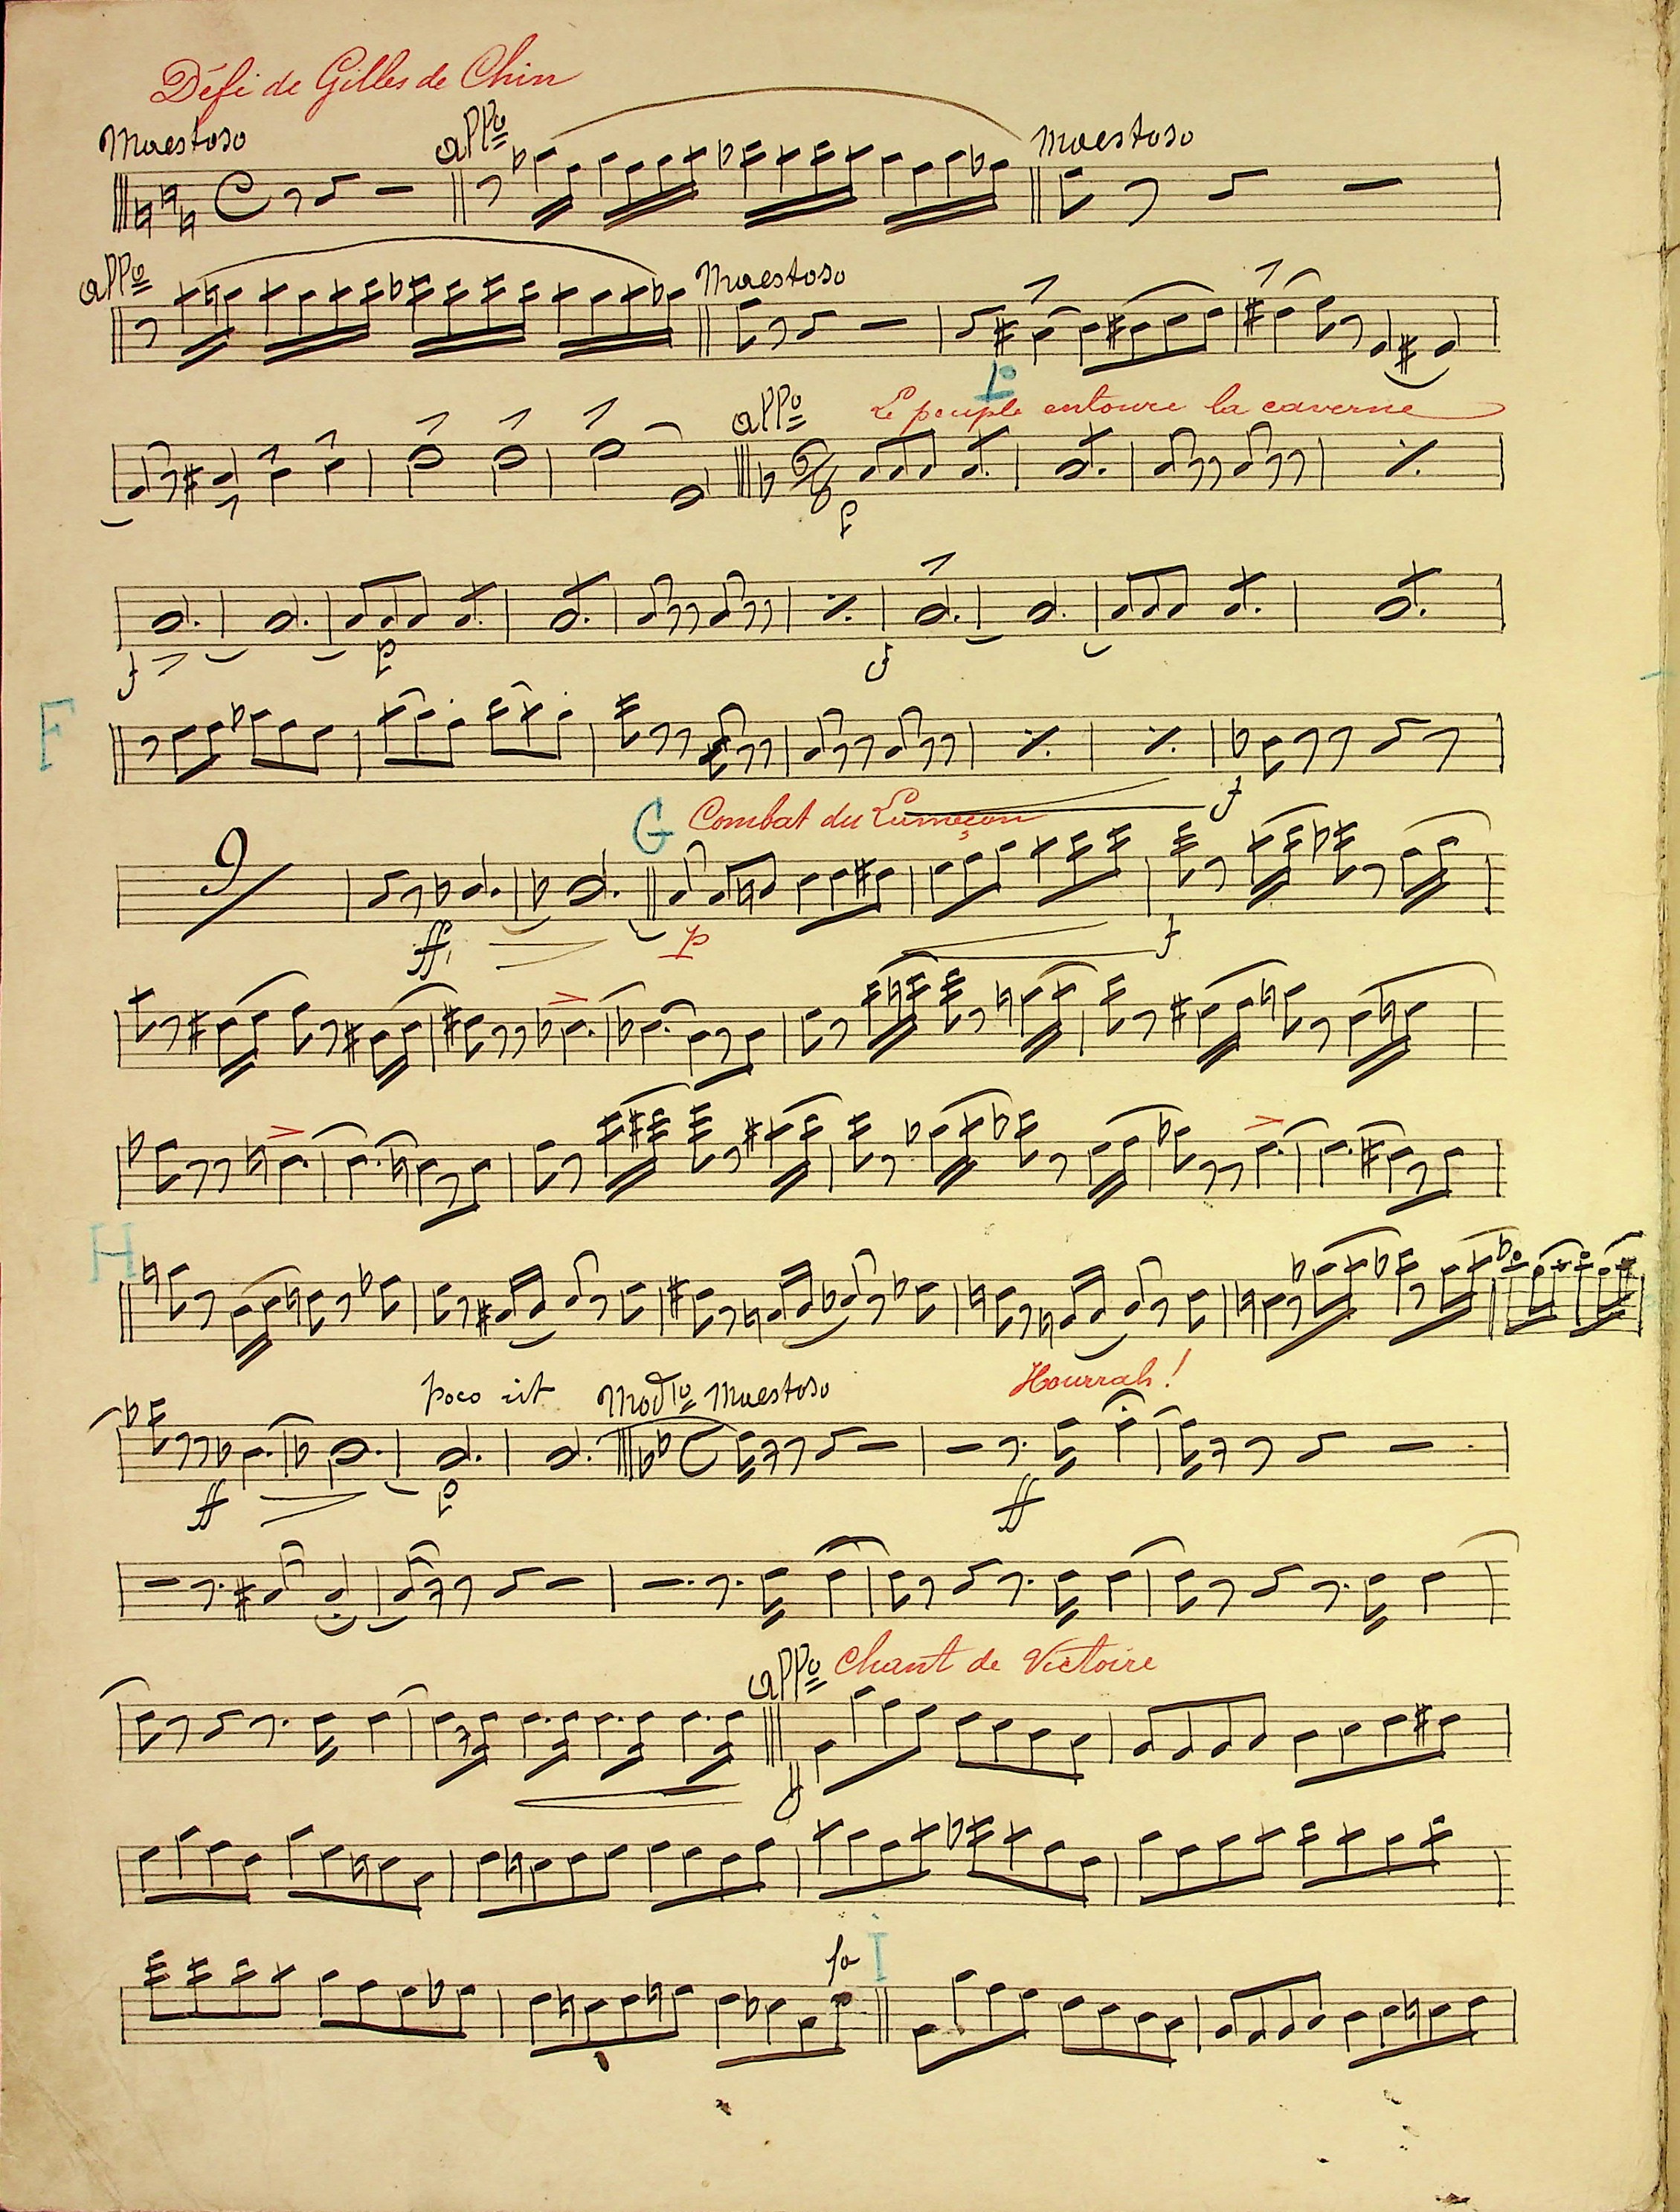 Défi de Gilles de Chin
Maestoso
all°
Maestoso
all°
Maestoso
all°
Le peuple entoure la caverne
p
f
p
f
F
f
9
G
Combat du Lumeçon
ff
p
f
H
poco rit
Mod to Maestoso
Hourrah!
ff
p
ff
all°
Chant de Victoire
ff
fa
I